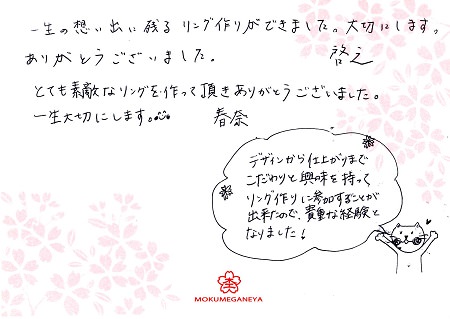 一生の想い出に残るリング作りができました。大切にします。
ありがとうございました。 啓之
とても素敵なリングを作って頂きありがとうございました。
一生大切にします。 春奈
デザインから仕上がりまで
こだわりと興味を持って
リング作りに参加することが
出来たので、貴重な経験と
なりました!
MOKUMEGANEYA